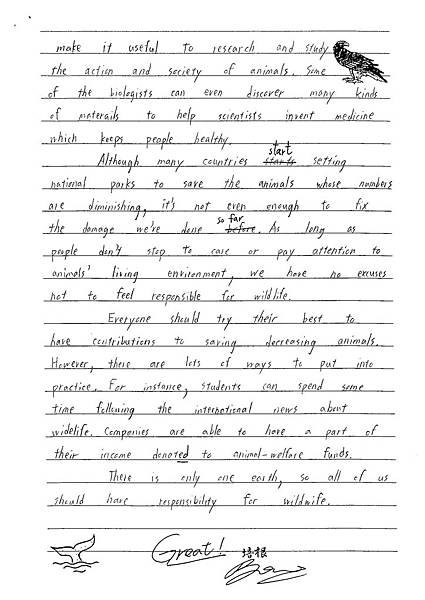 make it useful to research and study
the action and society of animals. Some
of the biologists can even discover many kinds
of materails to help scientists invent medicine
which keeps people healthy.
Although many countries starts start setting
national parks to save the animals whose numbers
are diminishing, it's not even enough to fix
the damage we've done before so far. As long as
people don't stop to care or pay attention to
animals' living environment, we have no excuses
not to feel responsible for wildlife.
Everyone should try their best to
have contributions to saving decreasing animals.
However, there are lots of ways to put into
practice. For instance, students can spend some
time following the international news about
widelife. Companies are able to have a part of
their income donated to animal-welfare funds.
There is only one earth, so all of us
should have responsibility for wildwife.
Great! 培根